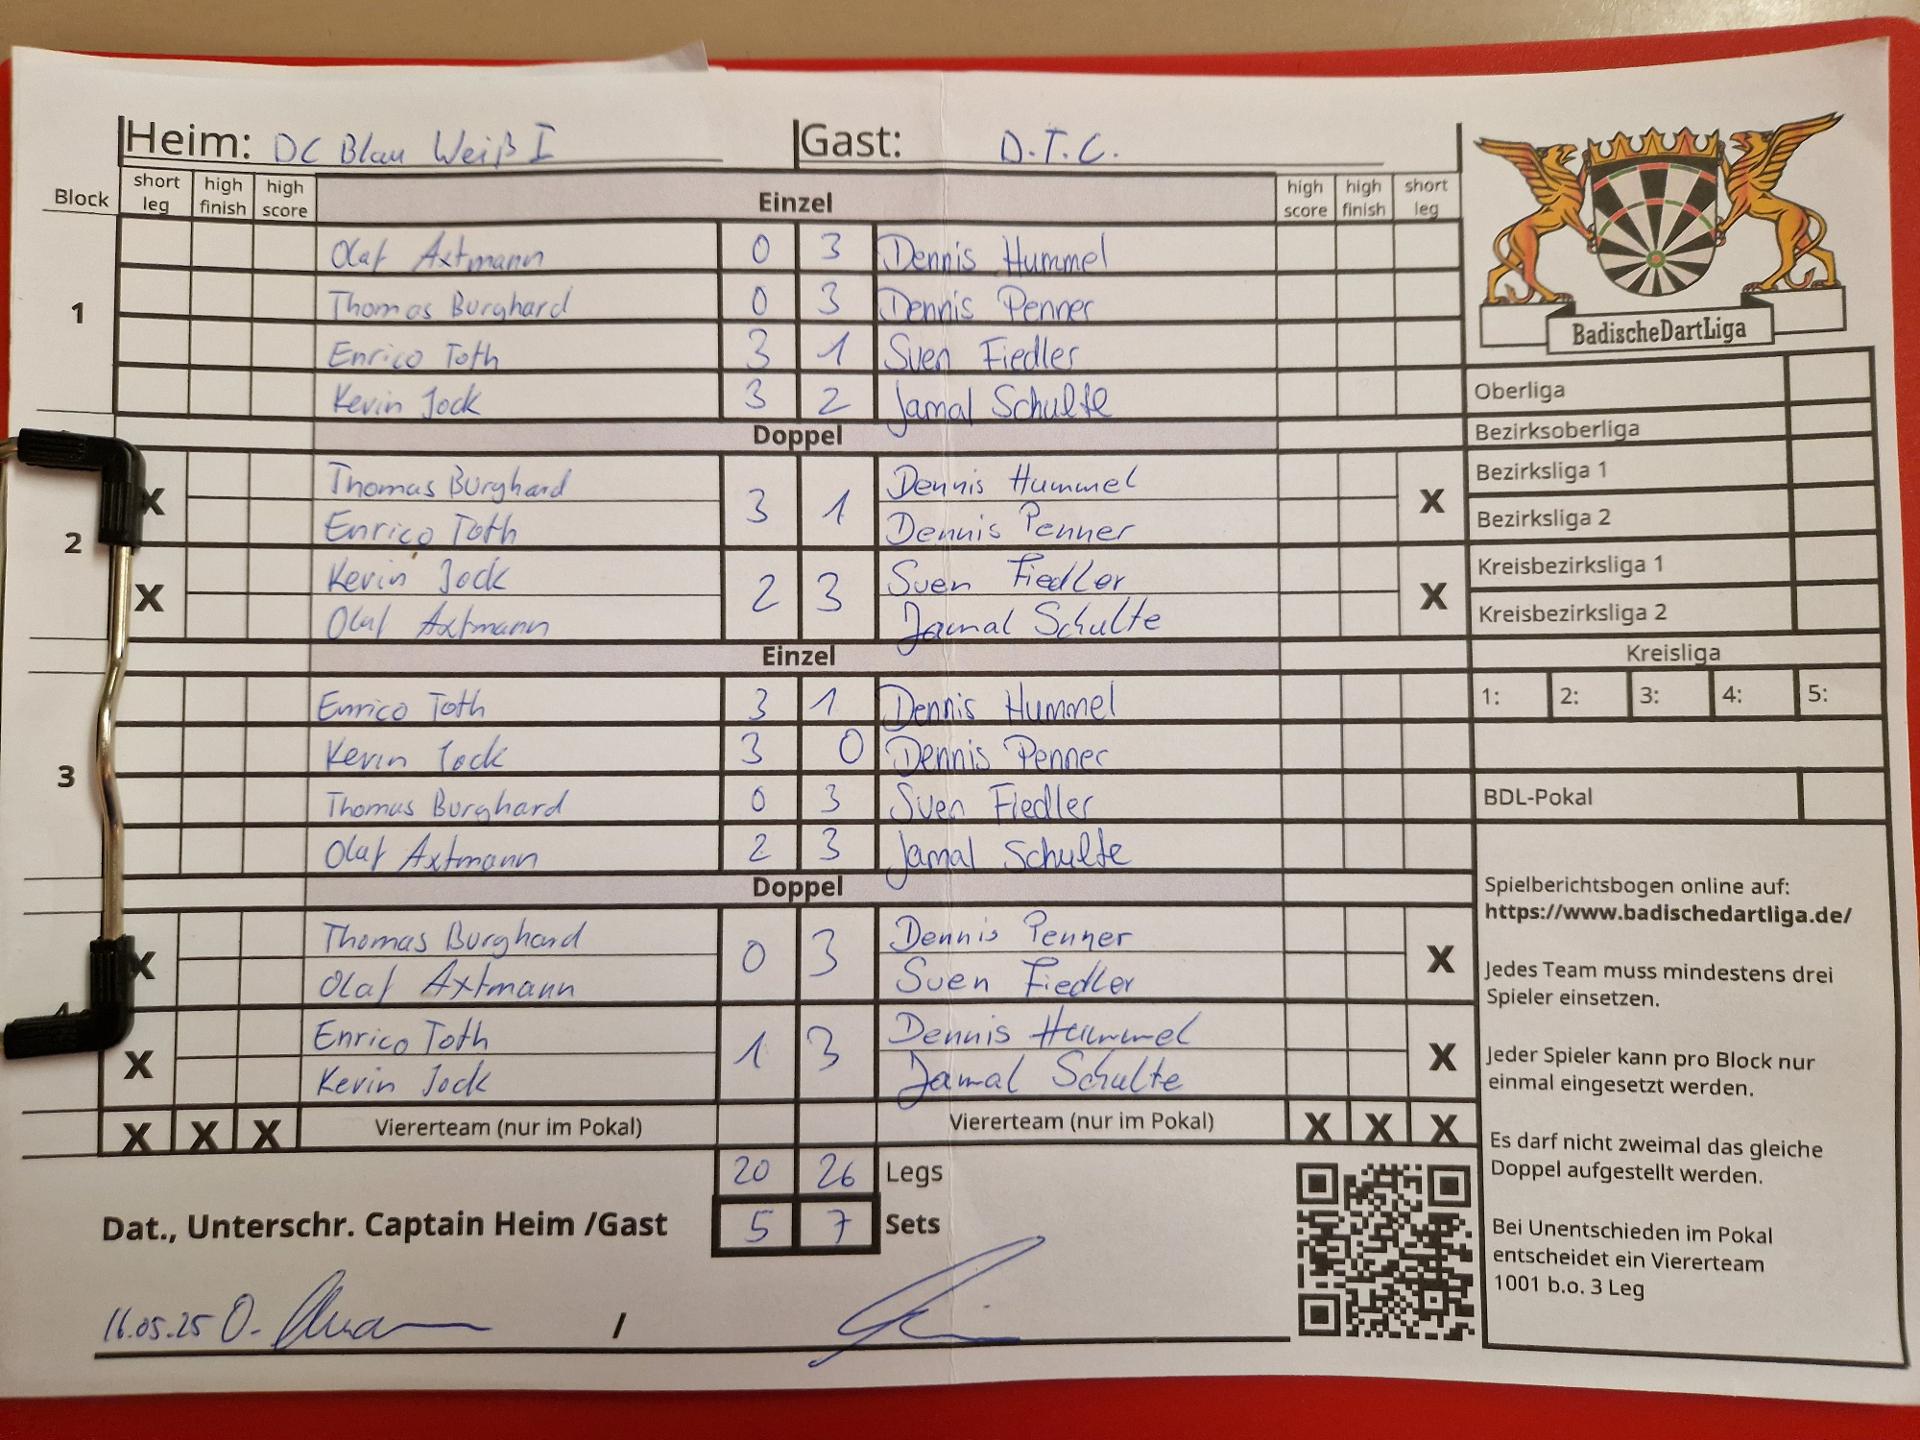 Heim: DC Blau Weiß I Gast: D.T.C.
Block short leg high finish high score Einzel high score high finish short leg
1
Olaf Axtmann 0 3 Dennis Hummel
Thomas Burghard 0 3 Dennis Penner
Enrico Toth 3 1 Sven Fiedler
Kevin Jock 3 2 Jamal Schulte
Doppel
2
X Thomas Burghard 3 1 Dennis Hummel X
Enrico Toth Dennis Penner
X Kevin Jock 2 3 Sven Fiedler X
Olaf Axtmann Jamal Schulte
Einzel
3
Enrico Toth 3 1 Dennis Hummel
Kevin Jock 3 0 Dennis Penner
Thomas Burghard 0 3 Sven Fiedler
Olaf Axtmann 2 3 Jamal Schulte
Doppel
X Thomas Burghard 0 3 Dennis Penner X
Olaf Axtmann Sven Fiedler
4
X Enrico Toth 1 3 Dennis Hummel X
Kevin Jock Jamal Schulte
X X X Viererteam (nur im Pokal) Viererteam (nur im Pokal) X X X
20 26 Legs
Dat., Unterschr. Captain Heim /Gast 5 7 Sets
16.05.25 O. /
BadischeDartLiga
Oberliga
Bezirksoberliga
Bezirksliga 1
Bezirksliga 2
Kreisbezirksliga 1
Kreisbezirksliga 2
Kreisliga
1: 2: 3: 4: 5:
BDL-Pokal
Spielberichtsbogen online auf:
https://www.badischedartliga.de/
Jedes Team muss mindestens drei
Spieler einsetzen.
Jeder Spieler kann pro Block nur
einmal eingesetzt werden.
Es darf nicht zweimal das gleiche
Doppel aufgestellt werden.
Bei Unentschieden im Pokal
entscheidet ein Viererteam
1001 b.o. 3 Leg